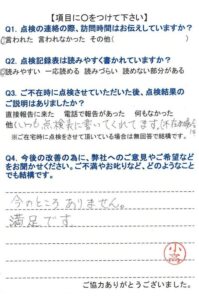 【項目に○をつけて下さい】
Q1. 点検の連絡の際、訪問時間はお伝えしていますか?
言われた 言われなかった その他( )
Q2. 点検記録表は読みやすく書かれていますか?
読みやすい 一応読める 読みづらい 読めない部分がある
Q3. ご不在時に点検させていただいた後、点検結果の
ご説明はありましたか?
直接報告に来た 電話で報告があった 何もなかった
他(いつも点検表に書いてくれてます。
※ご在宅時に点検をさせて頂いている場合は無回答で結構です。
Q4. 今後の改善の為に、弊社へのご意見やご希望など
をお聞かせください。ご不満やお叱りなど、どのようなこと
でも結構です。
今のところありません。
満足です。
ご協力ありがとうございました。